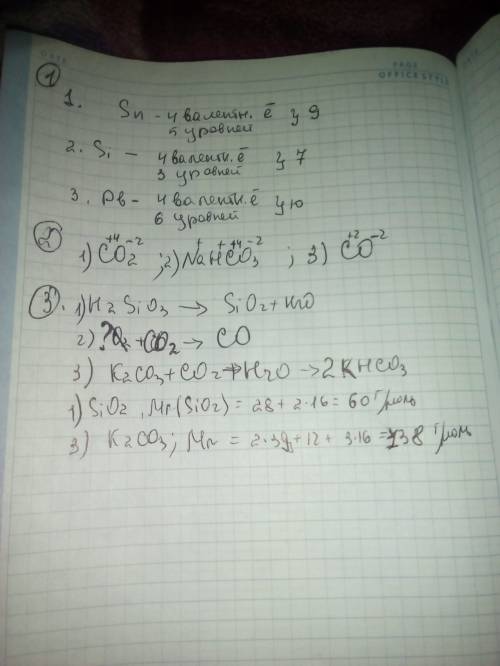 DATE
PAGE
OFFICE STYLE
DATE
①
1. Sn - 4 валентн. ё } 9
5 уровней
2. Si - 4 валентн. ё } 7
3 уровней
3. Pb - 4 валентн. ё } 10
6 уровней
② 1) C⁺⁴O₂⁻² ; 2) Na⁺H⁺C⁺⁴O₃⁻² ; 3) C⁺²O⁻²
③. 1) H2SiO3 → SiO2 + H2O
2) ? + CO2 → CO
3) K2CO3 + CO2 + H2O → 2KHCO3
1) SiO2, Mr(SiO2) = 28 + 2·16 = 60 г/моль
3) K2CO3; Mr = 2·39 + 12 + 3·16 = 138 г/моль